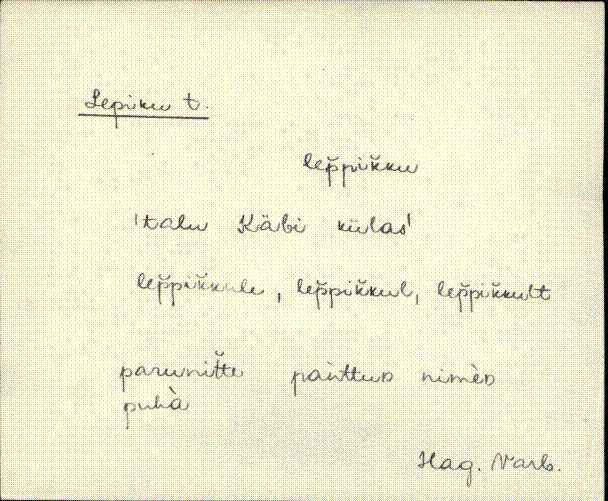 Lepiku t.
lep̆pik̆ku
'talu Käbi külas'
lep̆pik̆kule, lep̆pik̆kul, lep̆pik̆kult
parunit̆te pàǹttuᴅ nimèᴅ
puhà
Hag. Varb.